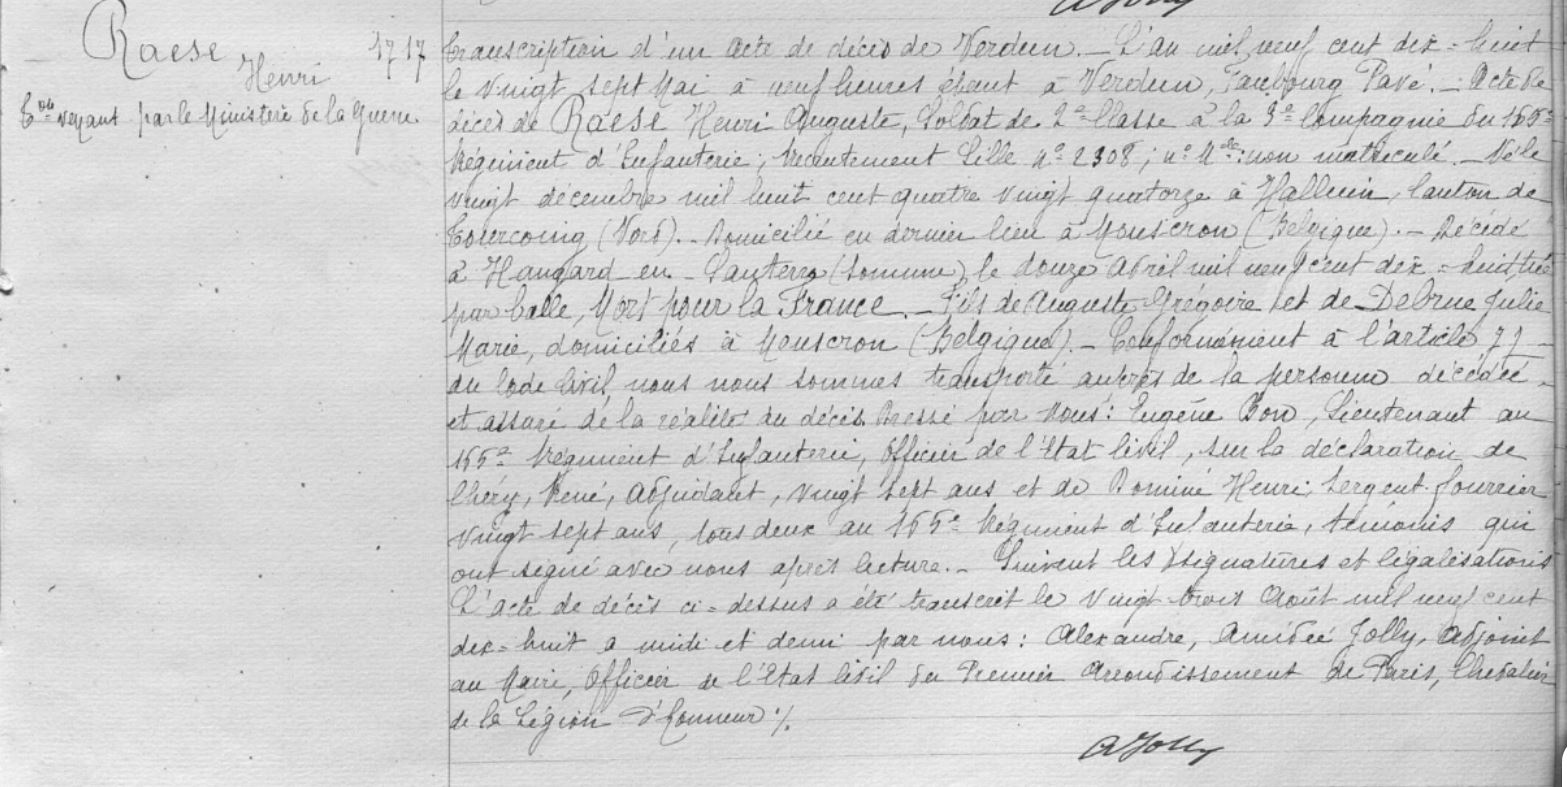 Raese
Henri
1717
Eon voyant par le Ministère de la Guerre.
Transcription d'un acte de décès de Verdun. _ L'an mil neuf cent dix = huit
le vingt sept Mai à neuf heures étant à Verdun, Faubourg Pavé. _ Acte de
décès de Raese Henri Auguste, Soldat de 2e Classe à la 3e Compagnie du 165e
Régiment d'Infanterie; recrutement Lille no 2308; no Mle: non matriculé. _ Né le
vingt décembre mil huit cent quatre vingt quatorze à Halluin, Canton de
Tourcoing (Nord). _ Domicilié en dernier lieu à Mouscron (Belgique). _ Décédé
à Hangard _ en _ Santerre (Somme) le douze Avril mil neuf cent dix = huit tué
par balle, Mort pour la France. _ Fils de Auguste Grégoire et de Debrue Julie
Marie, domiciliés à Mouscron (Belgique). _ Conformément à l'article 77 _
du Code Civil, nous nous sommes transporté auprès de la personne décédée _
et assuré de la réalité du décès. Dressé par Nous: Eugène Bon, Lieutenant au
165e Régiment d'Infanterie, Officier de l'Etat Civil, sur la déclaration de
Chéry, René, Adjudant, vingt sept ans et de Dominé Henri, Sergent fourrier
vingt sept ans, tous deux au 165e Régiment d'Infanterie, témoins qui
ont signé avec nous après lecture. _ Suivent les signatures et légalisations
L'acte de décès ci = dessus a été transcrit le vingt trois Août mil neuf cent
dix = huit a midi et demi par nous: Alexandre, Amédée Jolly, Adjoint
au Maire, Officier de l'Etat Civil du Premier Arrondissement de Paris, Chevalier
de la Légion d'honneur ./.
AJolly